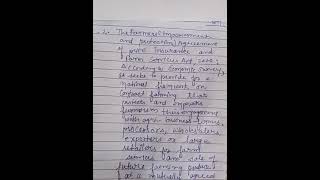 2. The Farmers (Empowerment
and protection) Agreement
of price Insurance and
Farm Services Act, 2020:
According to economic survey,
it seeks to provide for a
national framework on
contract farming that
protects and empowers
farmers in their engagement
with agri business firms,
processors, wholesalers
exporters or large
retailers for farm
services and sale of
future farming produce
at a mutually agreed